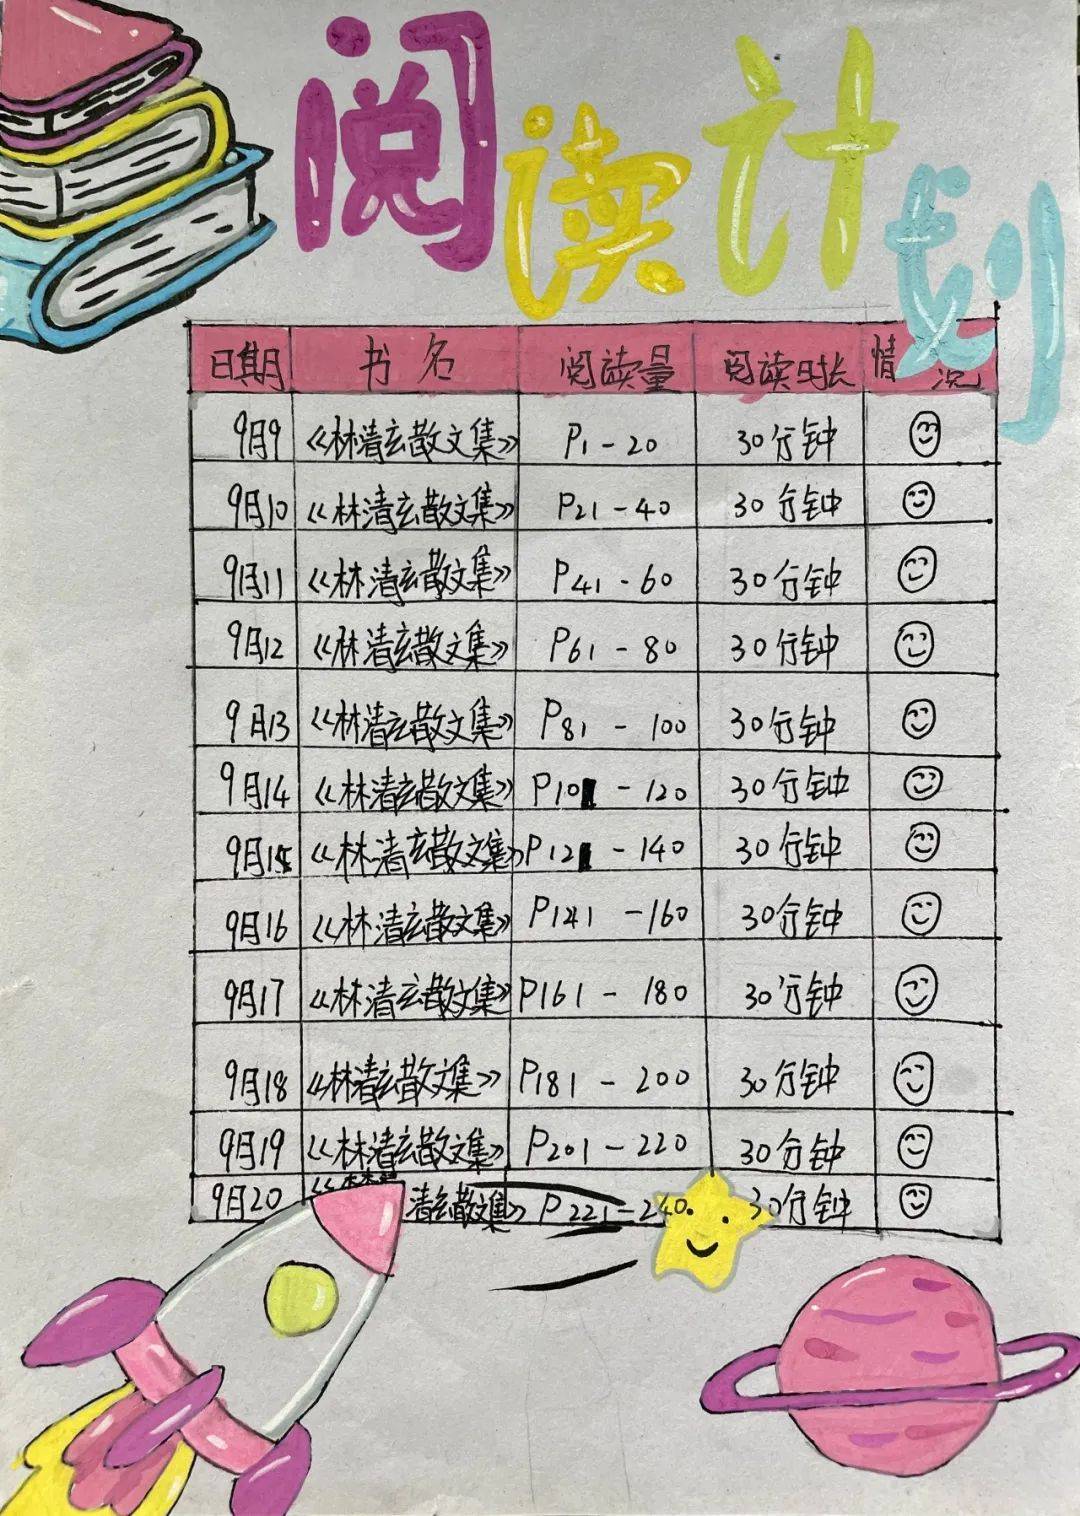 阅读计划
日期 书名 阅读量 阅读时长 情况
9月9 《林清玄散文集》 P1-20 30分钟
9月10 《林清玄散文集》 P21-40 30分钟
9月11 《林清玄散文集》 P41-60 30分钟
9月12 《林清玄散文集》 P61-80 30分钟
9月13 《林清玄散文集》 P81-100 30分钟
9月14 《林清玄散文集》 P101-120 30分钟
9月15 《林清玄散文集》 P121-140 30分钟
9月16 《林清玄散文集》 P141-160 30分钟
9月17 《林清玄散文集》 P161-180 30分钟
9月18 《林清玄散文集》 P181-200 30分钟
9月19 《林清玄散文集》 P201-220 30分钟
9月20 《林清玄散文集》 P221-240 30分钟